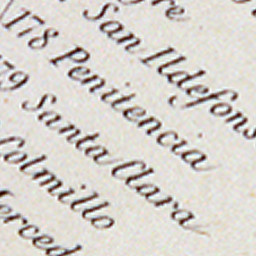 San Ildefons
178 Penitencia
79 Santa Clara
Colmillo
erced